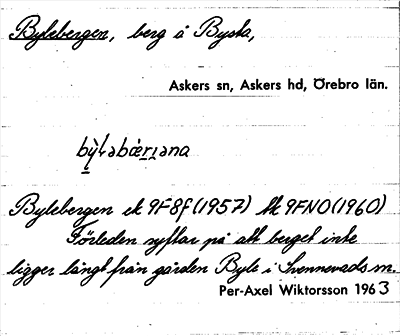 Bylebergen, berg å Bysta,
Askers sn, Askers hd, Örebro län.
Bylebergen ek 9F8f (1957) tk 9FNO (1960)
Förleden syftar på att berget inte
ligger långt från gården Byle i Svennevads sn.
Per-Axel Wiktorsson 1963